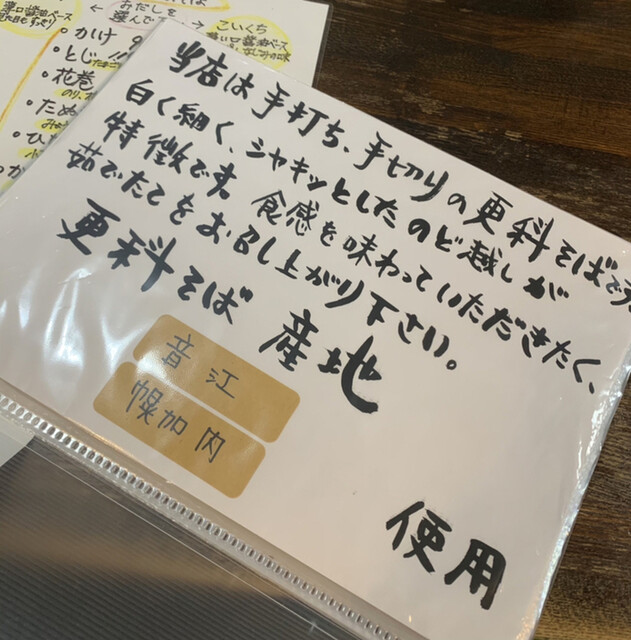 おだしを
こいくち
・かけ
・とじ
・花巻
当店は手打ち、手切りの更科そばです
白く細く、シャキッとしたのど越しが
特徴です 食感を味わっていただきたく、
茹でたてをお召し上がり下さい。
更科そば 産地
音江
幌加内
使用